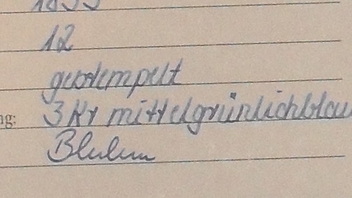 12
gestempelt
ng: 3 Kr mittelgrünlichblau